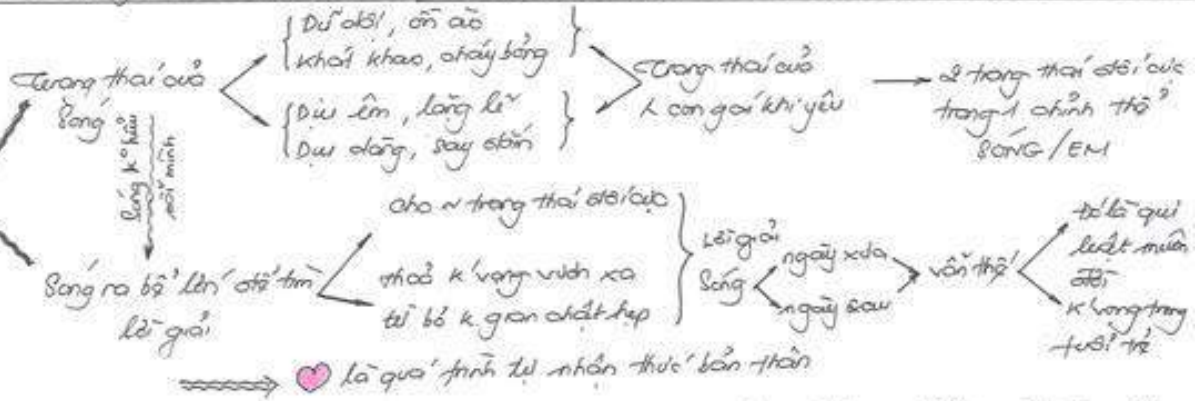 Trạng thái của
Sóng
Dữ dội, ồn ào
Khát khao, cháy bỏng
Dịu êm, lặng lẽ
Dịu dàng, say đắm
Trạng thái của
1 con gái khi yêu
2 trạng thái đối cực
trong 1 chỉnh thể
SÓNG / EM
Sóng k° hiểu
nổi mình
Sóng ra bể lớn để tìm
lời giải
cho ~ trạng thái đối cực
thoả k' vọng vươn xa
từ bỏ k. gian chật hẹp
Lời giải
Sóng
ngày xưa
ngày sau
vẫn thế
Đó là qui
luật muôn
đời
K' vọng trong
tuổi trẻ
là quá trình tự nhận thức bản thân